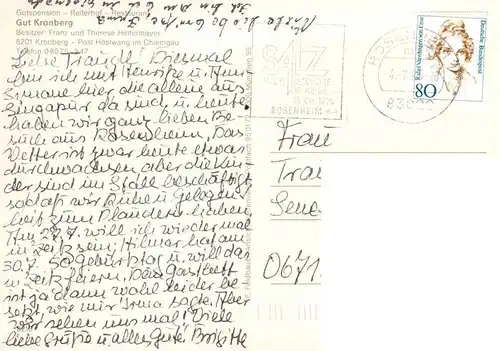 Gutspension – Reiterhof –
Gut Kronberg
Besitzer: Franz und Therese Hintermayer
8201 Kronberg – Post Höslwang im Chiemgau
Telefon 08075/
Liebe Traudl! Diesmal
bin ich mit Henriette u. Ann
Simone hier die alleine aus
Singapur da sind, u. heute
haben wir ganz lieben Be-
such aus Rosenheim. Das
Wetter ist zwar heute etwas
durchwachsen aber die Kin-
der sind im Stall beschäftigt
sodaß wir Ruhe u. Gelegen-
heit zum Plaudern haben.
Am 29.7. will ich wieder mal
in Zeitz sein; Hilmar hat am
30.7. 50. Geburtstag u. will das
in Zeitz feiern. Das Gasthaus
ist ja dann wohl leider be-
setzt, wie mir Irma sagte. Aber
wir sehen uns mal! Viele
liebe Grüße u. alles Gute! Brigitte
SALZ
ROSENHEIM
ROSENHEIM
830
Deutsche Bundespost
80
Frau
Trau
Sene
0671